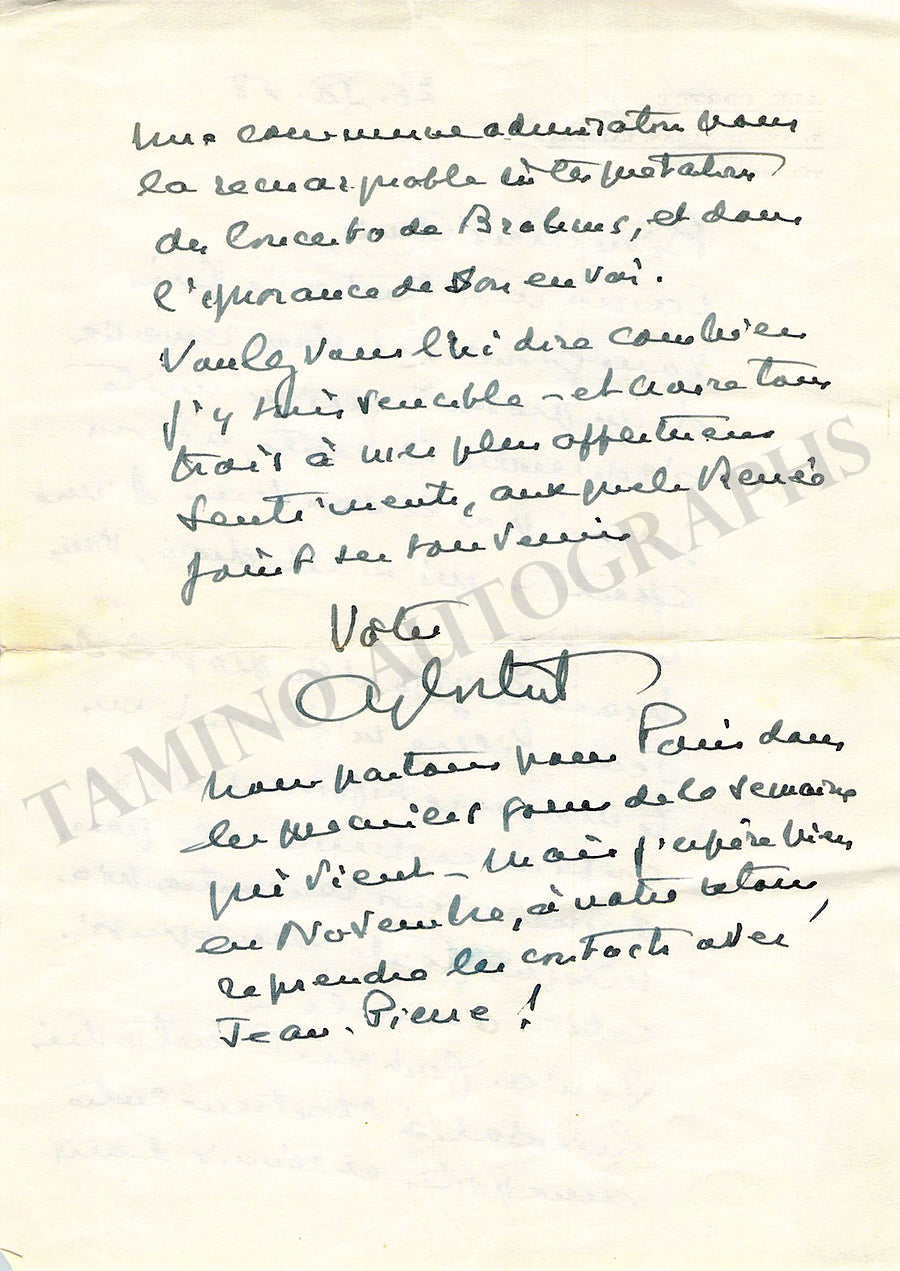 une commune admiration pour
la remarquable interprétation
du Concerto de Brahms, et dans
l'ignorance de son envoi.
Voulez vous lui dire combien
j'y suis sensible - et croire tous
trois à mes plus affectueux
sentiments, auxquels Renée
joint ses souvenirs
Votre
Nous partons pour Paris dans
les premiers jours de la semaine
qui vient - mais j'espère bien
en Novembre, à notre retour,
reprendre les contacts avec
Jean-Pierre !
TAMINO AUTOGRAPHS